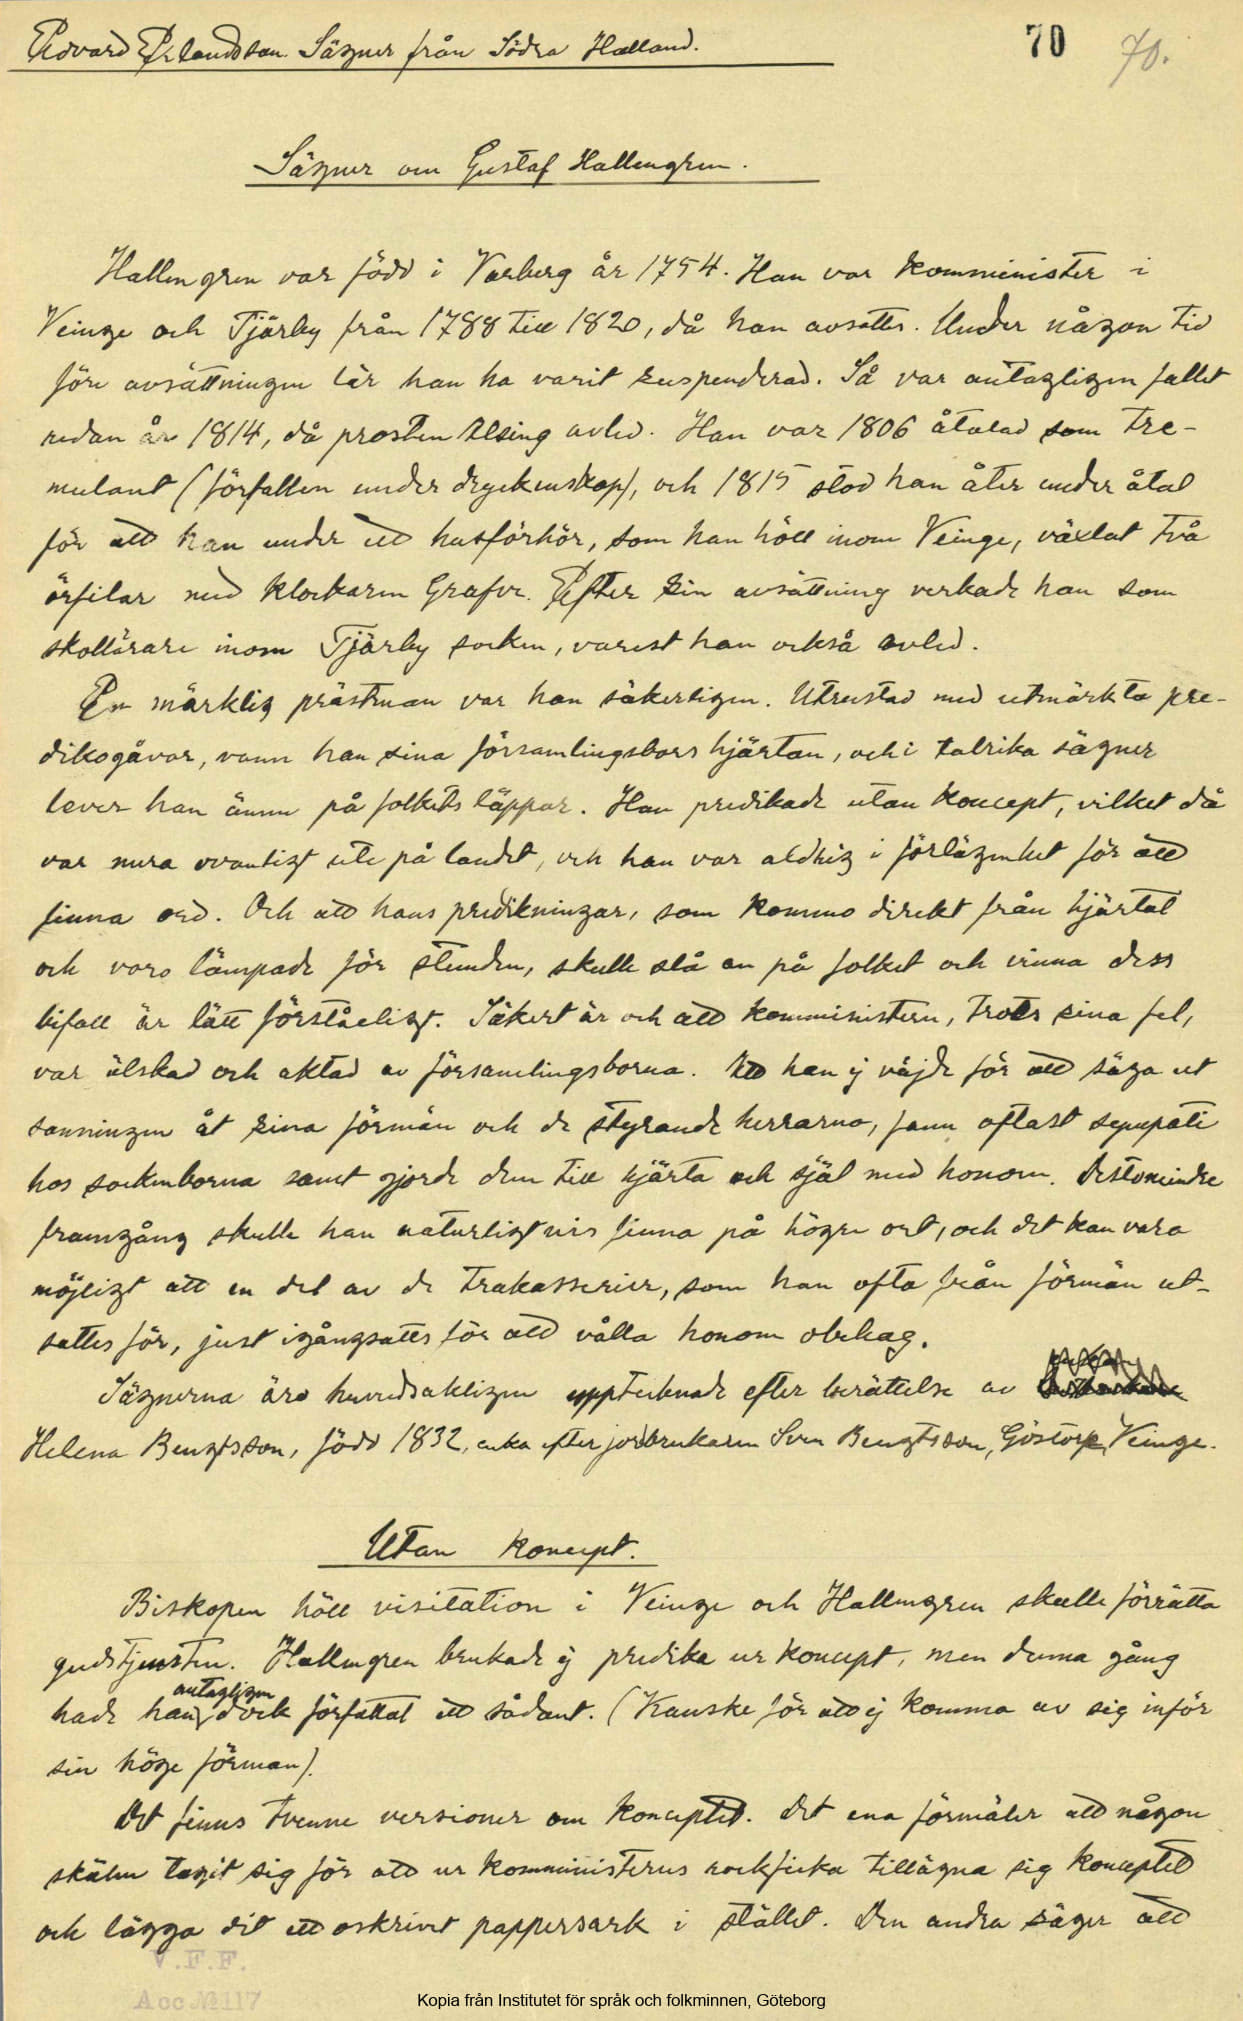 Edvard Erlandsson. Sägner från Södra Halland.
70
70.
Sägner om Gustaf Hallengren.
Hallengren var född i Varberg år 1754. Han var komminister i
Veinge och Tjärby från 1788 till 1820, då han avsattes. Under någon tid
före avsättningen lär han ha varit suspenderad. Så var antagligen fallet
redan år 1814, då prosten Alsing avled. Han var 1806 åtalad som tre-
mulant (förfallen under dryckenskap), och 1815 stod han åter under åtal
för att han under ett husförhör, som han höll inom Veinge, växlat två
örfilar med klockaren Grafve. Efter sin avsättning verkade han som
skollärare inom Tjärby socken, varest han också avled.
En märklig prästman var han säkerligen. Utrustad med utmärkta pre-
dikogåvor, vann han sina församlingsbors hjärtan, och i talrika sägner
lever han ännu på folkets läppar. Han predikade utan koncept, vilket då
var mera ovanligt ute på landet, och han var aldrig i förlägenhet för att
finna ord. Och att hans predikningar, som kommo direkt från hjärtat
och voro lämpade för stunden, skulle slå an på folket och vinna dess
bifall är lätt förståeligt. Säkert är och att komministern, trots sina fel,
var älskad och aktad av församlingsborna. Att han ej väjde för att säga ut
sanningen åt sina förmän och de styrande herrarna, fann oftast sympati
hos sockenborna samt gjorde dem till hjärta och själ med honom. Destomindre
framgång skulle han naturligtvis finna på högre ort, och det kan vara
möjligt att en del av de trakasserier, som han ofta från förmän ut-
sattes för, just igångsattes för att vålla honom obehag.
Sägnerna äro huvudsakligen upptecknade efter berättelse av
Helena Bengtsson, född 1832, enka efter jordbrukaren Sven Bengtsson, Göstorp, Veinge.
Utan koncept.
Biskopen höll visitation i Veinge och Hallengren skulle förrätta
gudstjensten. Hallengren brukade ej predika ur koncept, men denna gång
hade han antagligen dock författat ett sådant. (Kanske för att ej komma av sig inför
sin höge förman).
Det finns tvenne versioner om konceptet. Det ena förmäler att någon
skälm tagit sig för att ur komministerns rockficka tillägna sig konceptet
och lägga dit ett oskrivet pappersark i stället. Den andra säger att
V.F.F.
Acc № 117
Kopia från Institutet för språk och folkminnen, Göteborg